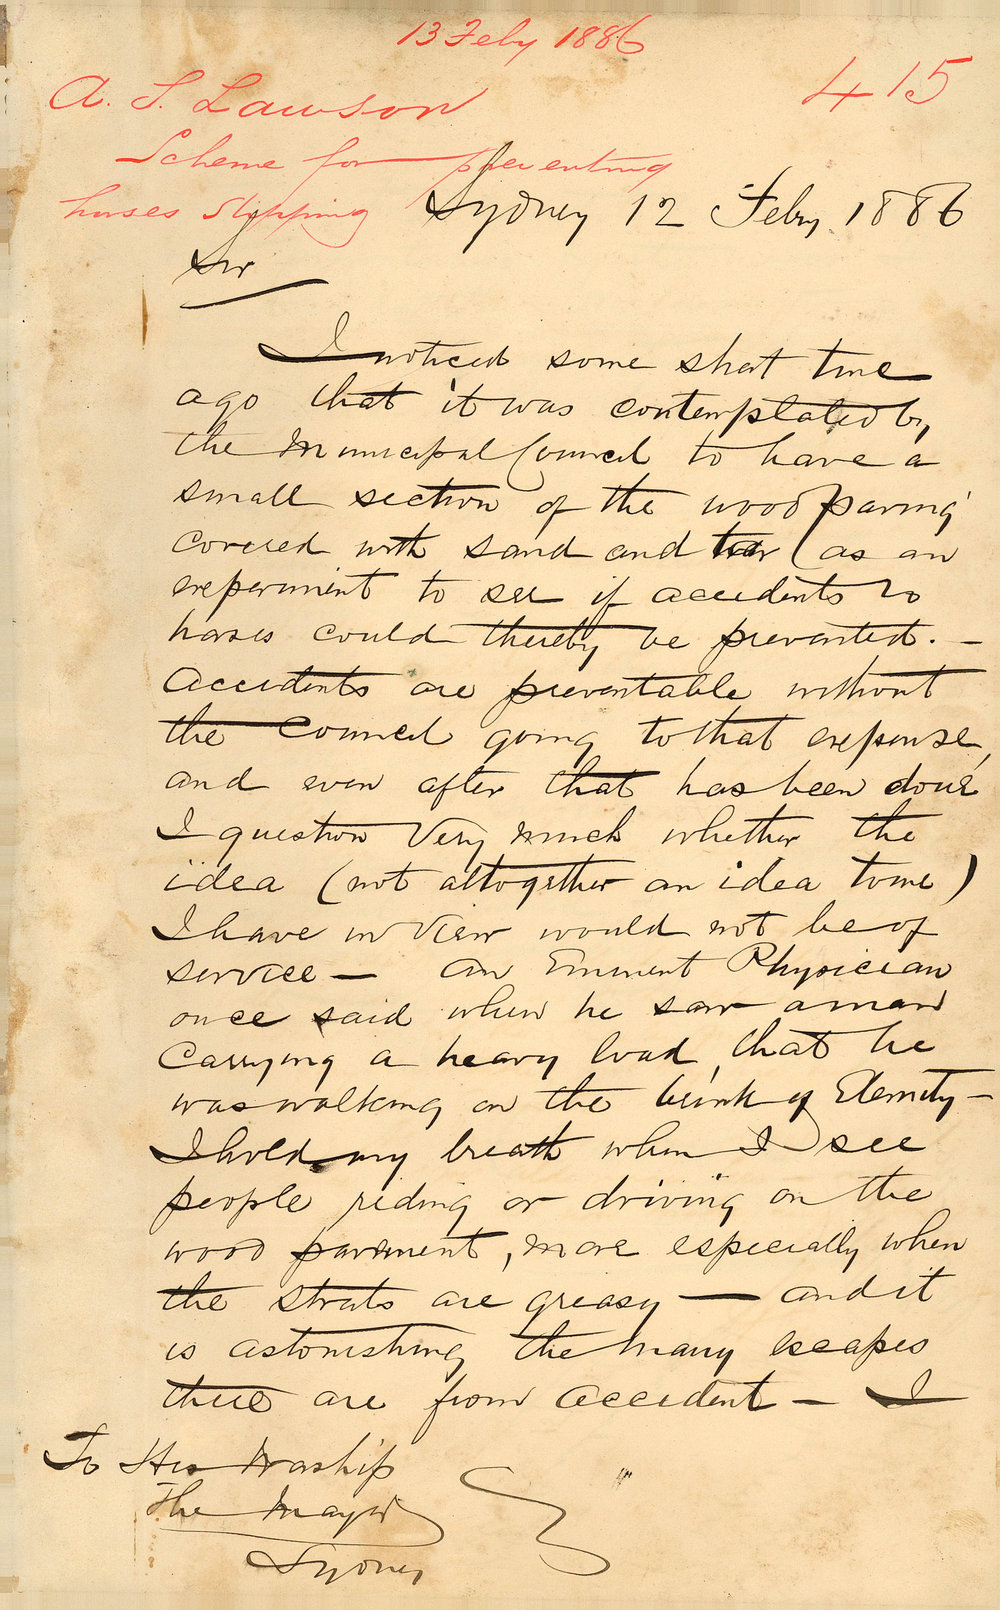 13 Feby 1886
415
A. S. Lawson
Scheme for preventing
horses slipping
Sydney 12 Feby. 1886
Sir
I noticed some short time
ago that it was contemplated by
the Municipal Council to have a
small section of the wood paving
covered with sand and tar (as an
experiment to see if accidents to
horses could thereby be prevented. —
Accidents are preventable without
the Council going to that expense,
and even after that has been done
I question very much whether the
idea (not altogether an idea to me)
I have in view would not be of
service — An Eminent Physician
once said when he saw a man
Carrying a heavy load, that he
was walking on the brink of Eternity —
I hold my breath when I see
people riding or driving on the
wood pavement, more especially when
the streets are greasy — and it
is astonishing the many escapes
there are from accident — I
To His Worship
The Mayor
Sydney